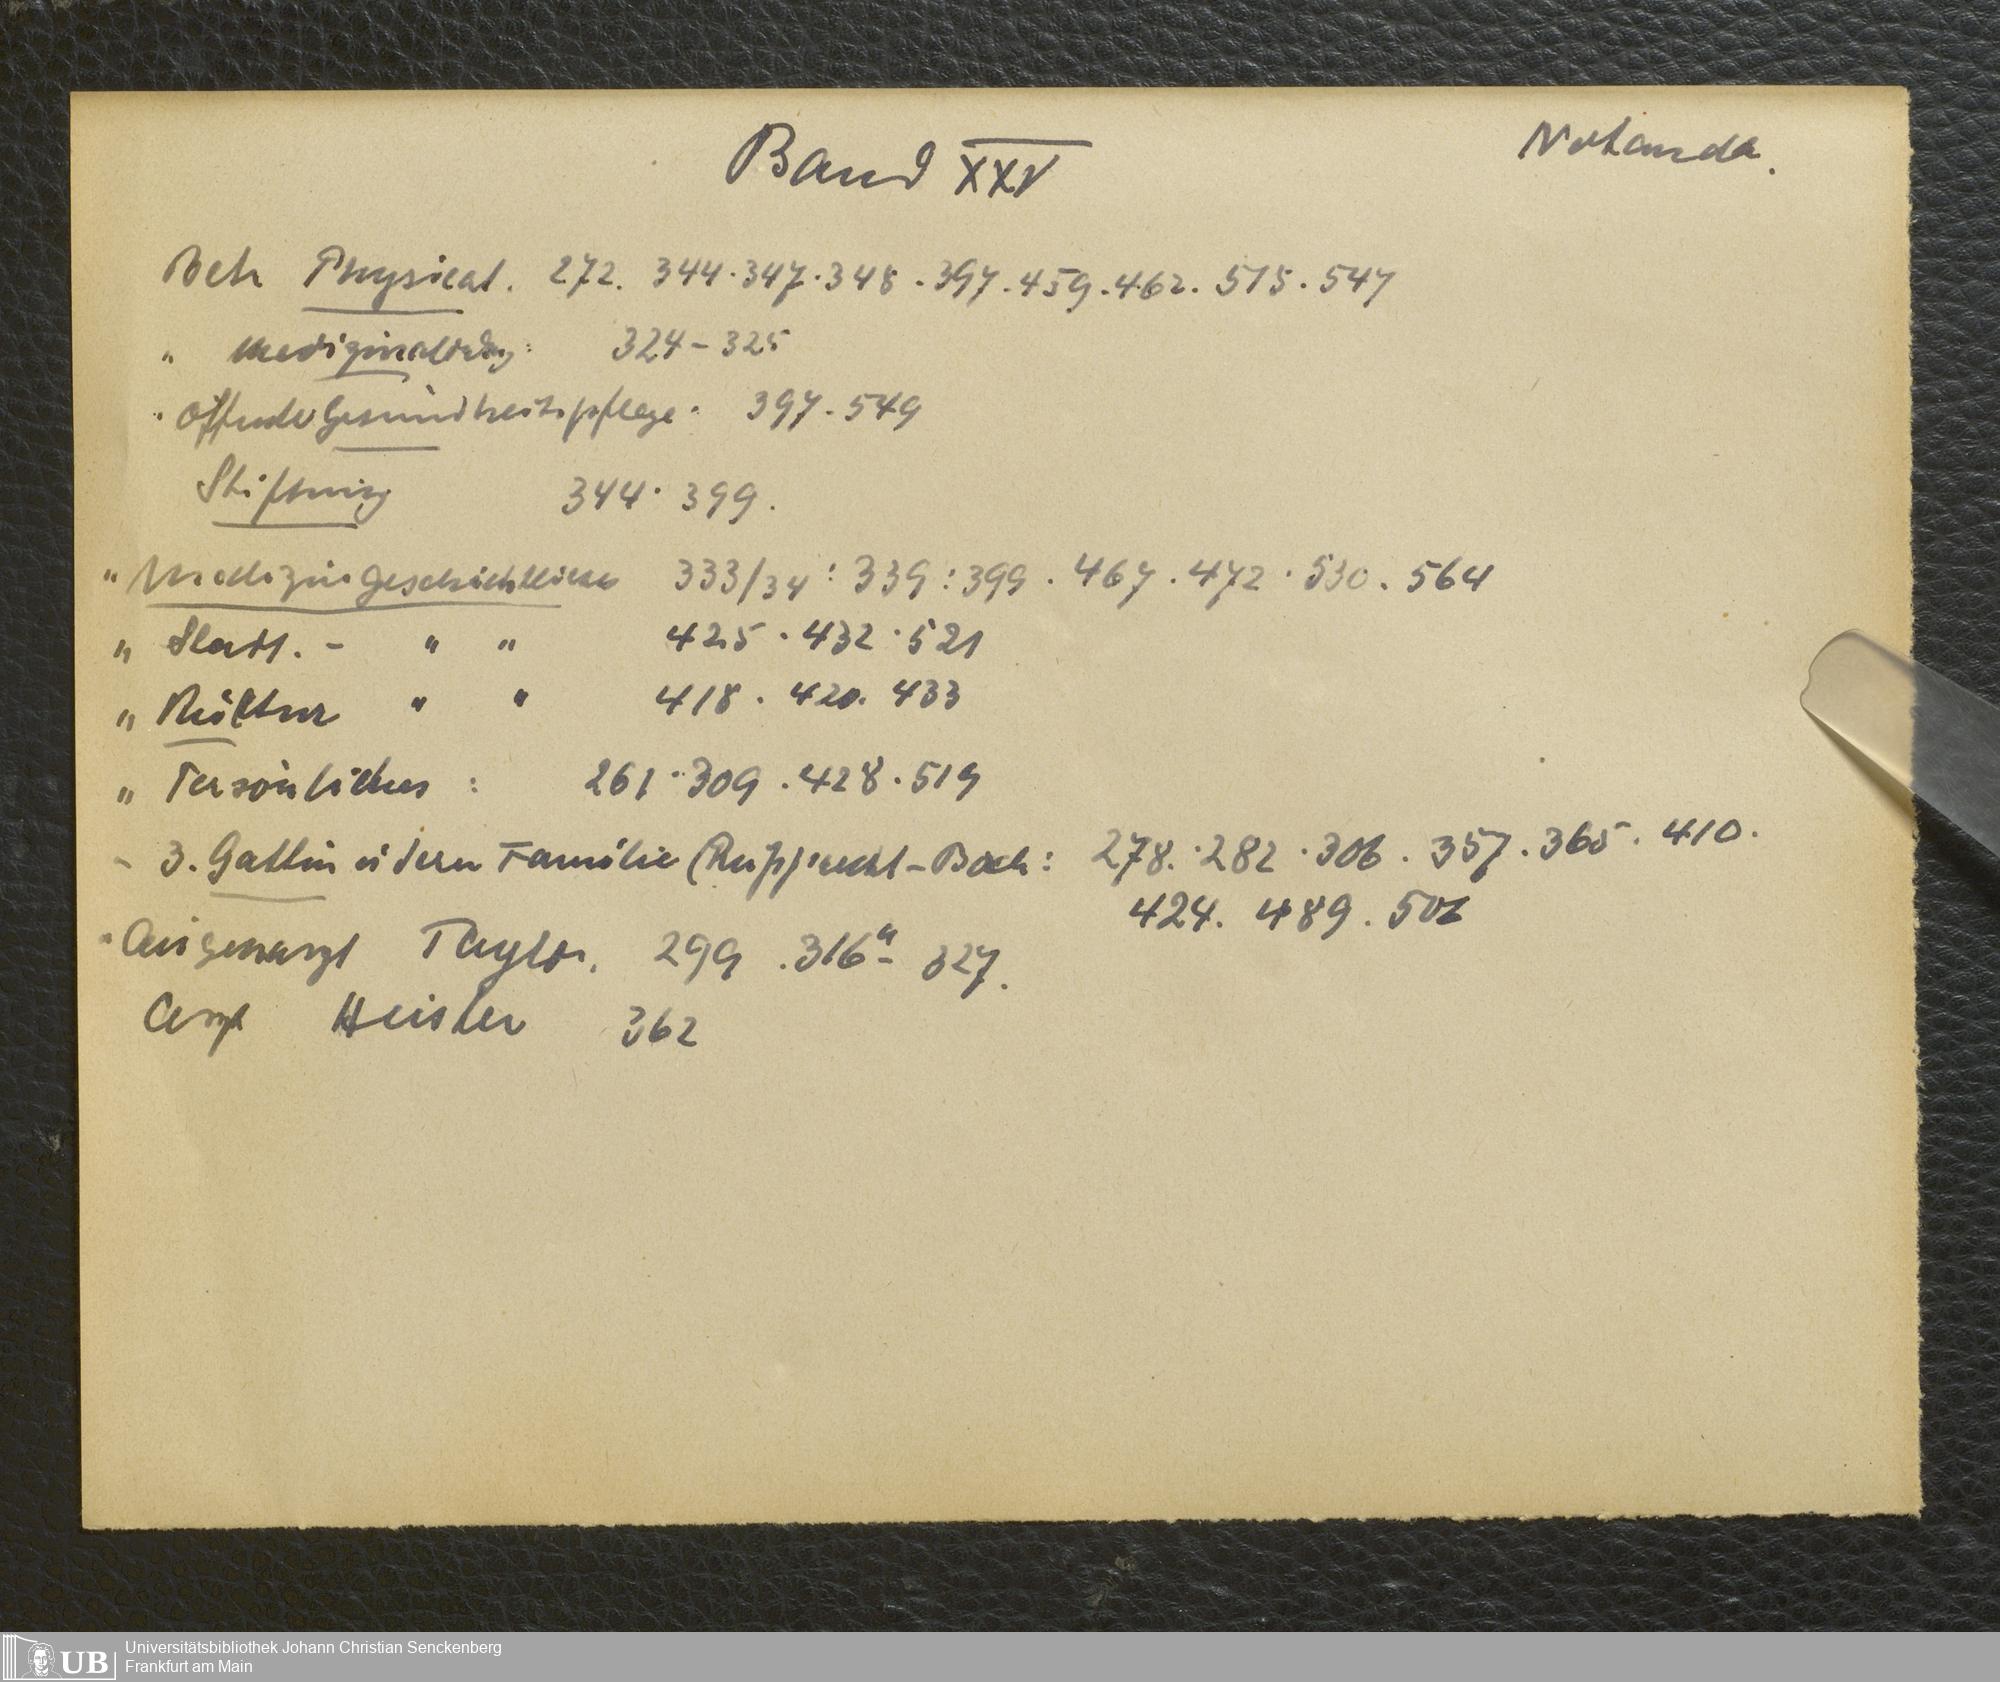 Band XXV
Notanda.
Betr Physicat. 272. 344. 347. 348. 397. 459. 462. 515. 547
" 324-325
" Gesundheitspflege. 397. 549
Stiftung 344. 399.
" Medizingeschichtliches 333/34 : 339 : 399. 467. 472. 530. 564
" Stadt. - " " 425. 432. 521
" Kultur " " 418. 420. 433
" Persönliches : 261. 309. 428. 519
- 3. Gattin u deren Familie (Rupprecht-Bach: 278. 282. 306. 357. 365. 410.
424. 489. 506
" Augenarzt Taylor. 299. 316a- 327.
Arzt Heister 362
UB
Universitätsbibliothek Johann Christian Senckenberg
Frankfurt am Main